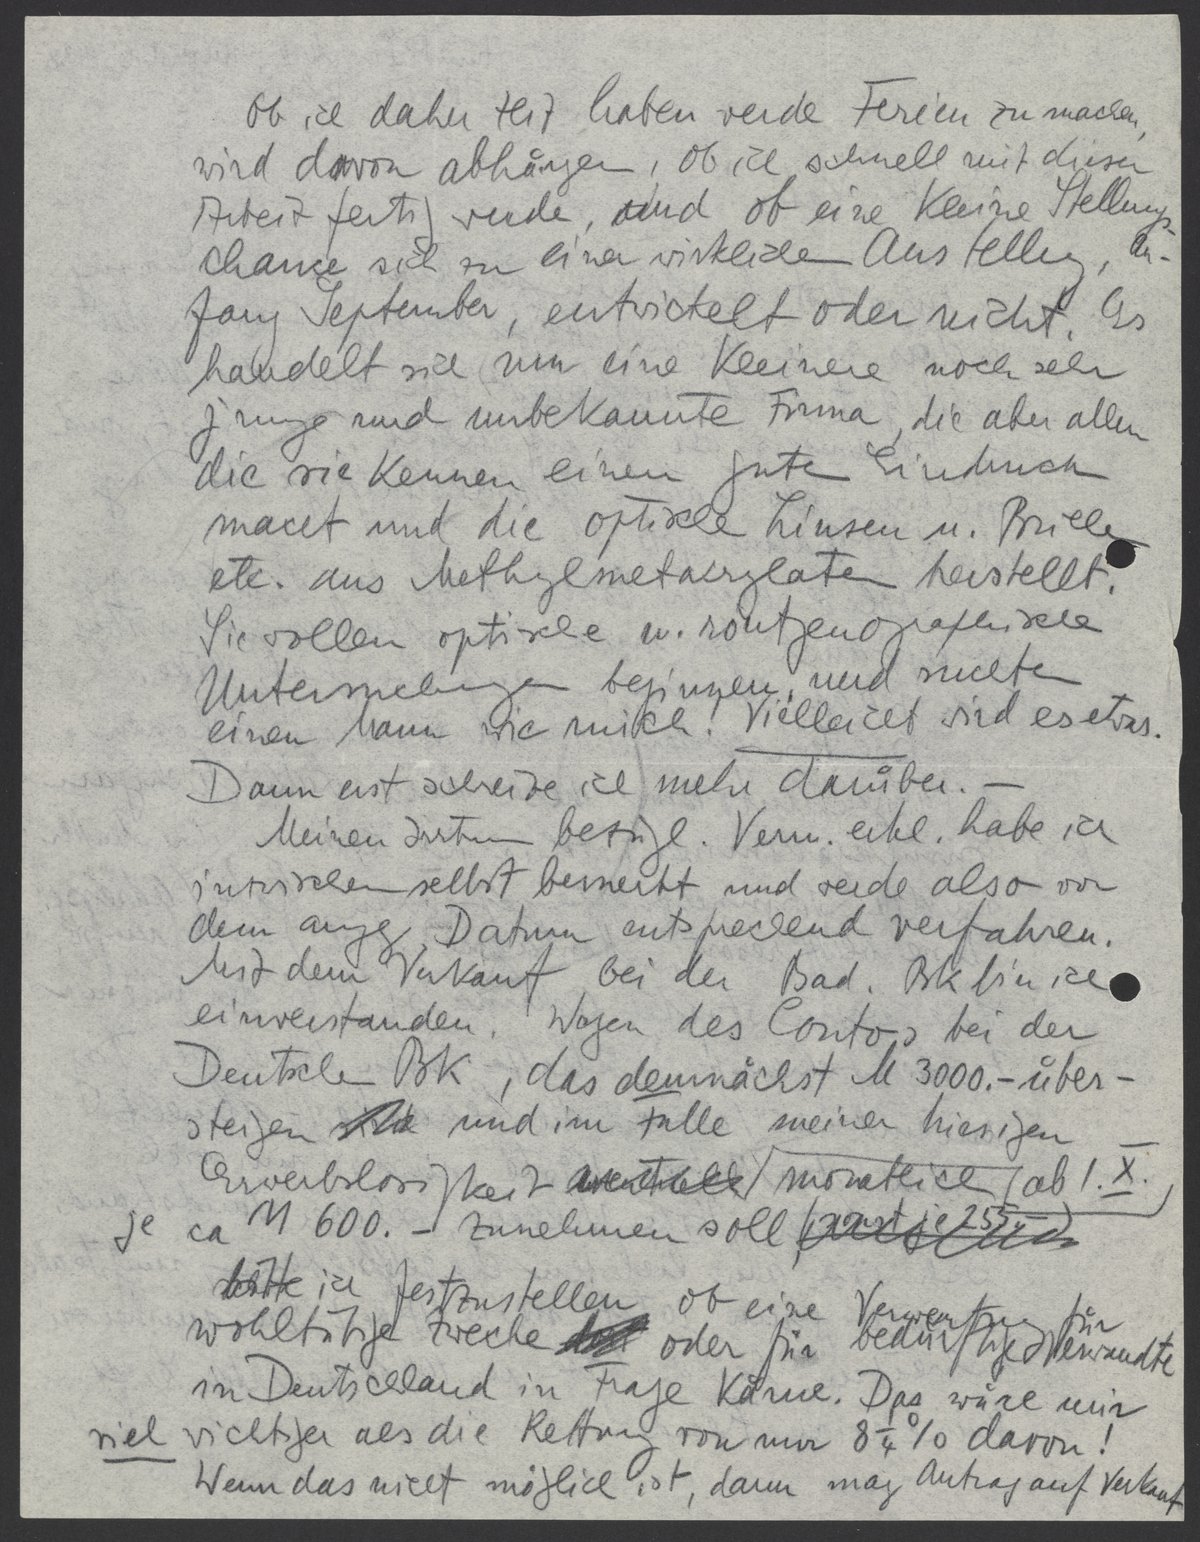 Ob ich daher Zeit haben werde Ferien zu machen,
wird davon abhängen, ob ich schnell mit dieser
Arbeit fertig werde, und ob eine kleine Stellungs-
chance sich zu einer wirklichen Anstellung, An-
fang September, entwickelt oder nicht. Es
handelt sich um eine kleinere noch sehr
junge und unbekannte Firma, die aber allen
die sie kennen einen guten Eindruck
macht und die optische Linsen u. Brillen
etc. aus Methylmetacrylaten herstellt.
Sie wollen optische u. röntgenographische
Untersuchungen beginnen, und suchten
einen Mann wie mich! Vielleicht wird es etwas.
Dann erst schreibe ich mehr darüber. –
Meinen Irrtum bezügl. Verm. erkl. habe ich
inzwischen selbst bemerkt und werde also vor
dem angeg. Datum entsprechend verfahren.
Mit dem Verkauf bei der Bad. Bk bin ich
einverstanden. Wegen des Contos bei der
Deutschen Bk, das demnächst M 3000.– über-
steigen und im Falle meiner hiesigen
Erwerbslosigkeit monatlich (ab 1. X.)
je ca M 600.– zunehmen soll,
bitte ich festzustellen ob eine Verwertung für
wohltätige Zwecke oder für bedürftige Verwandte
in Deutschland in Frage käme. Das wäre mir
viel wichtiger als die Rettung von nur 8¼% davon!
Wenn das nicht möglich ist, dann mag Antrag auf Verkauf